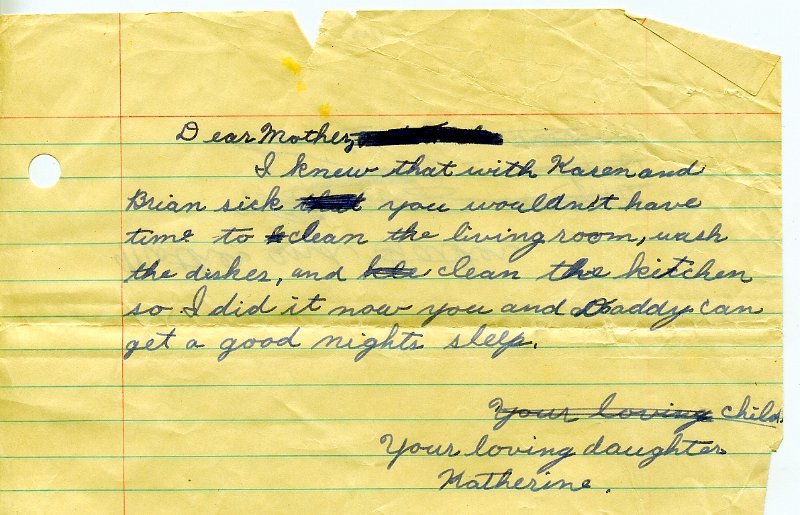 Dear Mother,
I knew that with Karen and
Brian sick that you wouldn't have
time to clean the livingroom, wash
the dishes, and clean the kitchen
so I did it now you and Daddy can
get a good nights sleep.
Your loving child
Your loving daughter
Katherine.